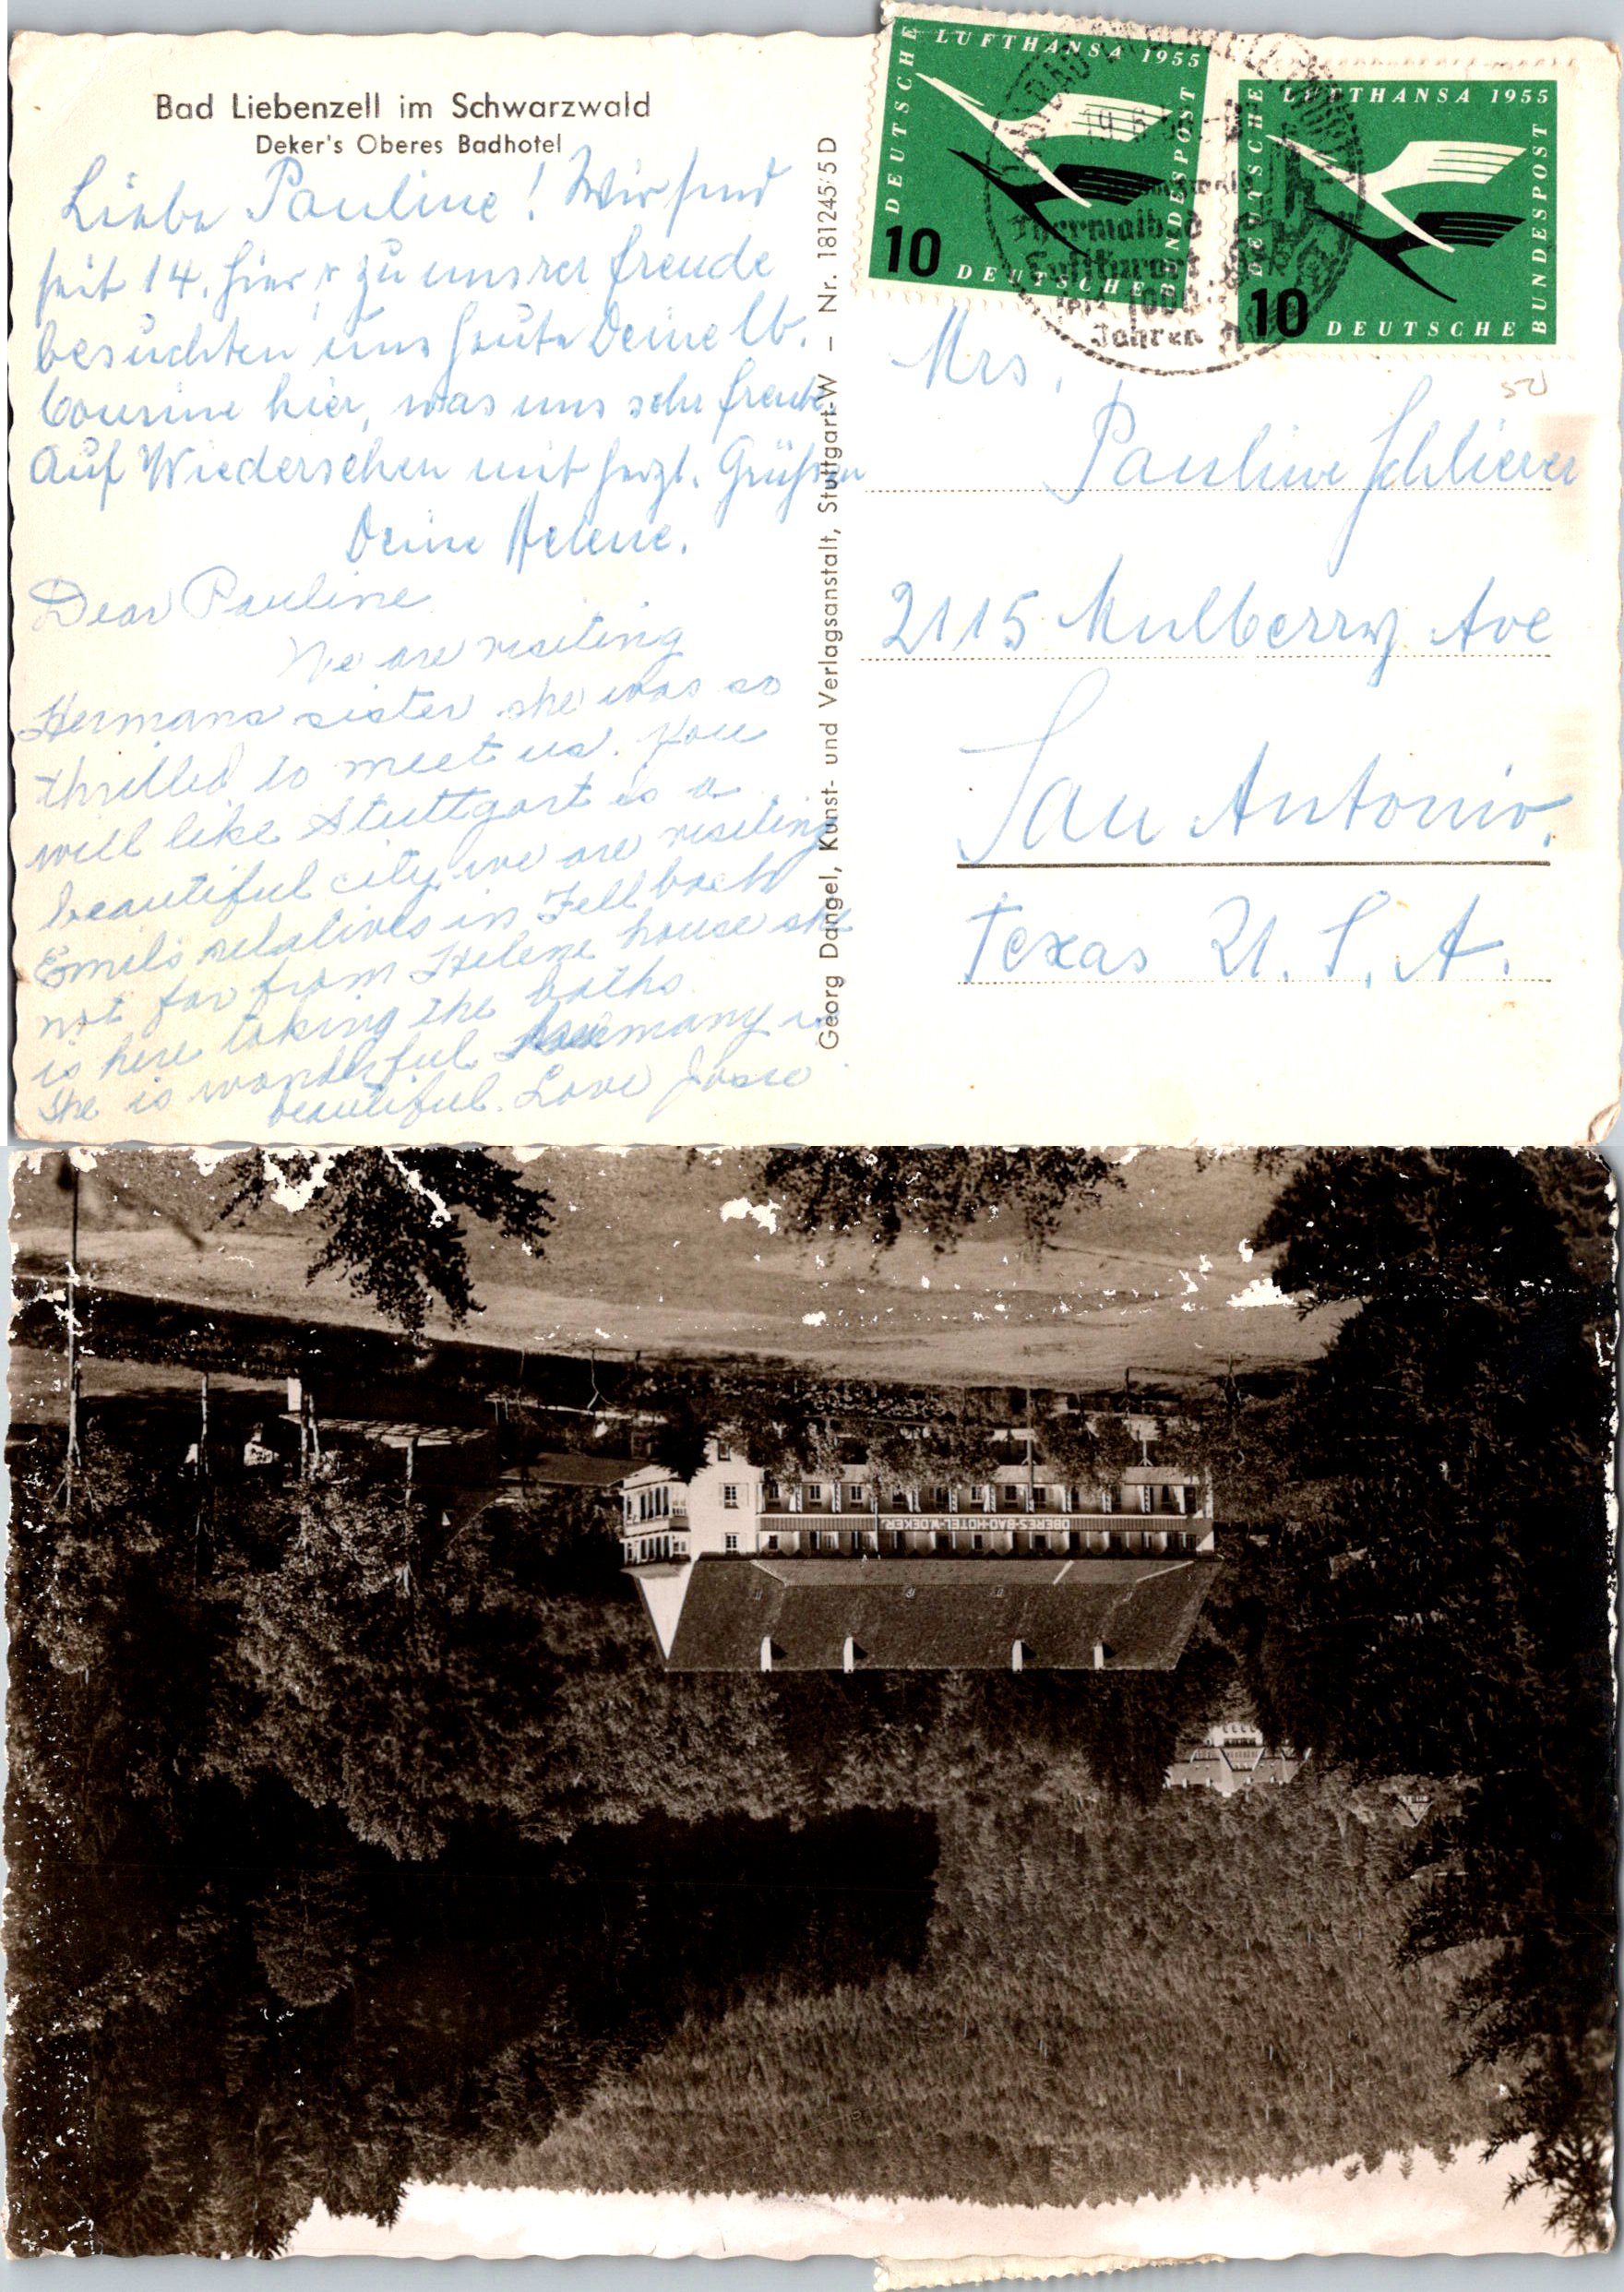 Bad Liebenzell im Schwarzwald
Deker's Oberes Badhotel
Liebe Pauline! Wir sind
seit 14. hier, zu unsrer Freude
besuchten uns heute Deine lb.
Cousine hier, was uns sehr freute.
Auf Wiedersehen mit herzl. Grüßen
Deine Helene.
Dear Pauline
We are visiting
Hermans sister she was so
thrilled to meet us. You
will like Stuttgart is a
beautiful city, we are visiting
Emils relatives in Fellbach
not far from Helene house she
is here taking the baths
She is wonderful Germany is
beautiful. Love
Georg Dangel, Kunst- und Verlagsanstalt, Stuttgart-W – Nr. 181245/5 D
LUFTHANSA 1955
DEUTSCHE
BUNDESPOST
10
DEUTSCHE
LUFTHANSA 1955
DEUTSCHE
BUNDESPOST
10
DEUTSCHE
Thermalbad
Luftkurort
Jahren
Mrs.
Pauline Schlierer
2115 Mulberry Ave
San Antonio.
Texas U. S. A.
OBERES-BAD-HOTEL-W.DEKER.